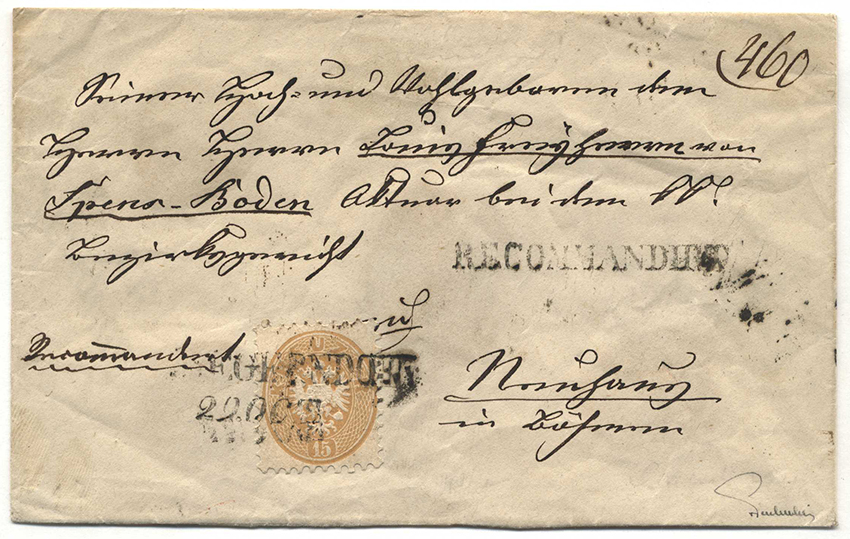 460
Seiner Hoch- und Wohlgeboren dem
Herrn Herrn Louis Freyherrn von
Spens-Boden Aktuar bei dem KK.
Bezirksgericht
RECOMMANDIRT
Recommandirt
29. OCT
15
Neuhaus
in Böhmen